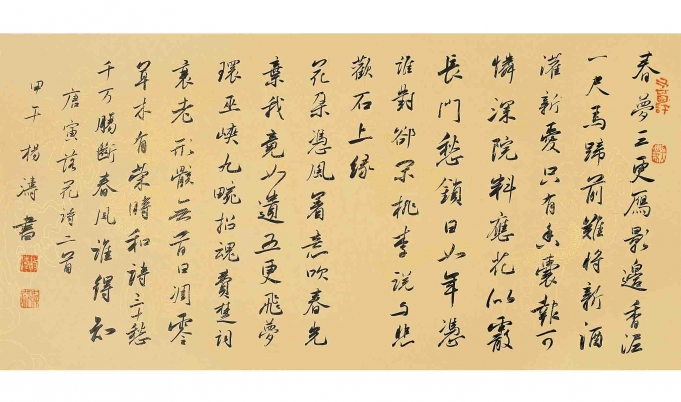 春夢三更鴈影邊香泥
一尺馬蹄前難將新酒
灌新憂只有香囊報可
憐深院料應花似霰
長門愁鎖日如年憑
誰對卻閑桃李說与悲
歡石上緣
花朵憑風著意吹春光
棄我竟如遺五更飛夢
環巫峽九畹招魂費楚詞
衰老形骸無昔日凋零
草木有榮時和詩三十愁
千万腸斷春風誰得知
唐寅落花詩二首
甲午楊濤書